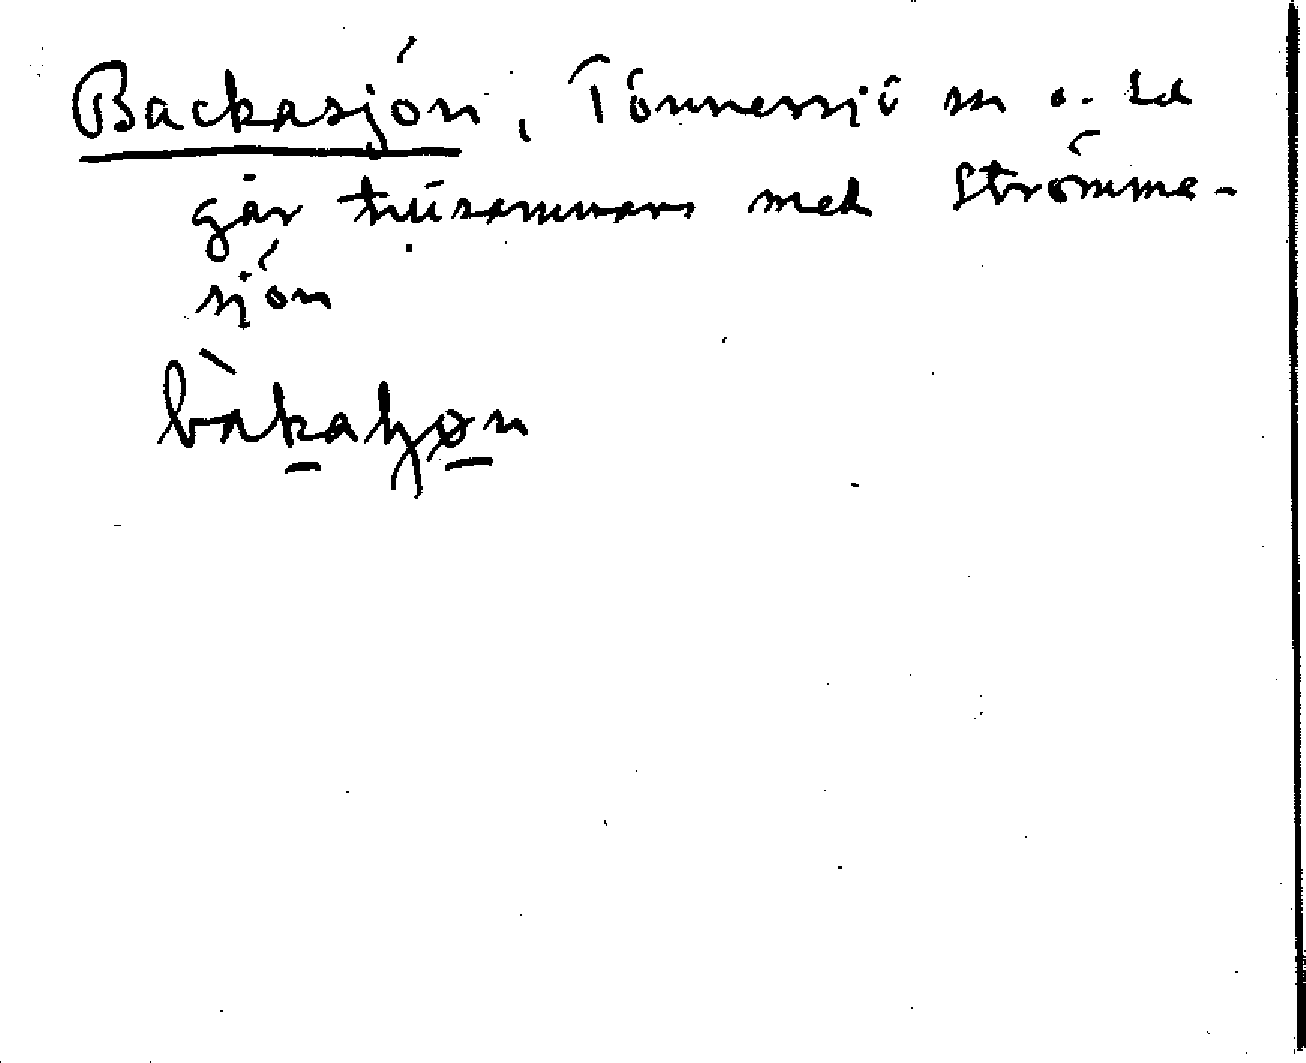 Backasjön, Tönnersjö sn o. hd
går tillsammans med Strömma-
sjön
bàkaʃøn